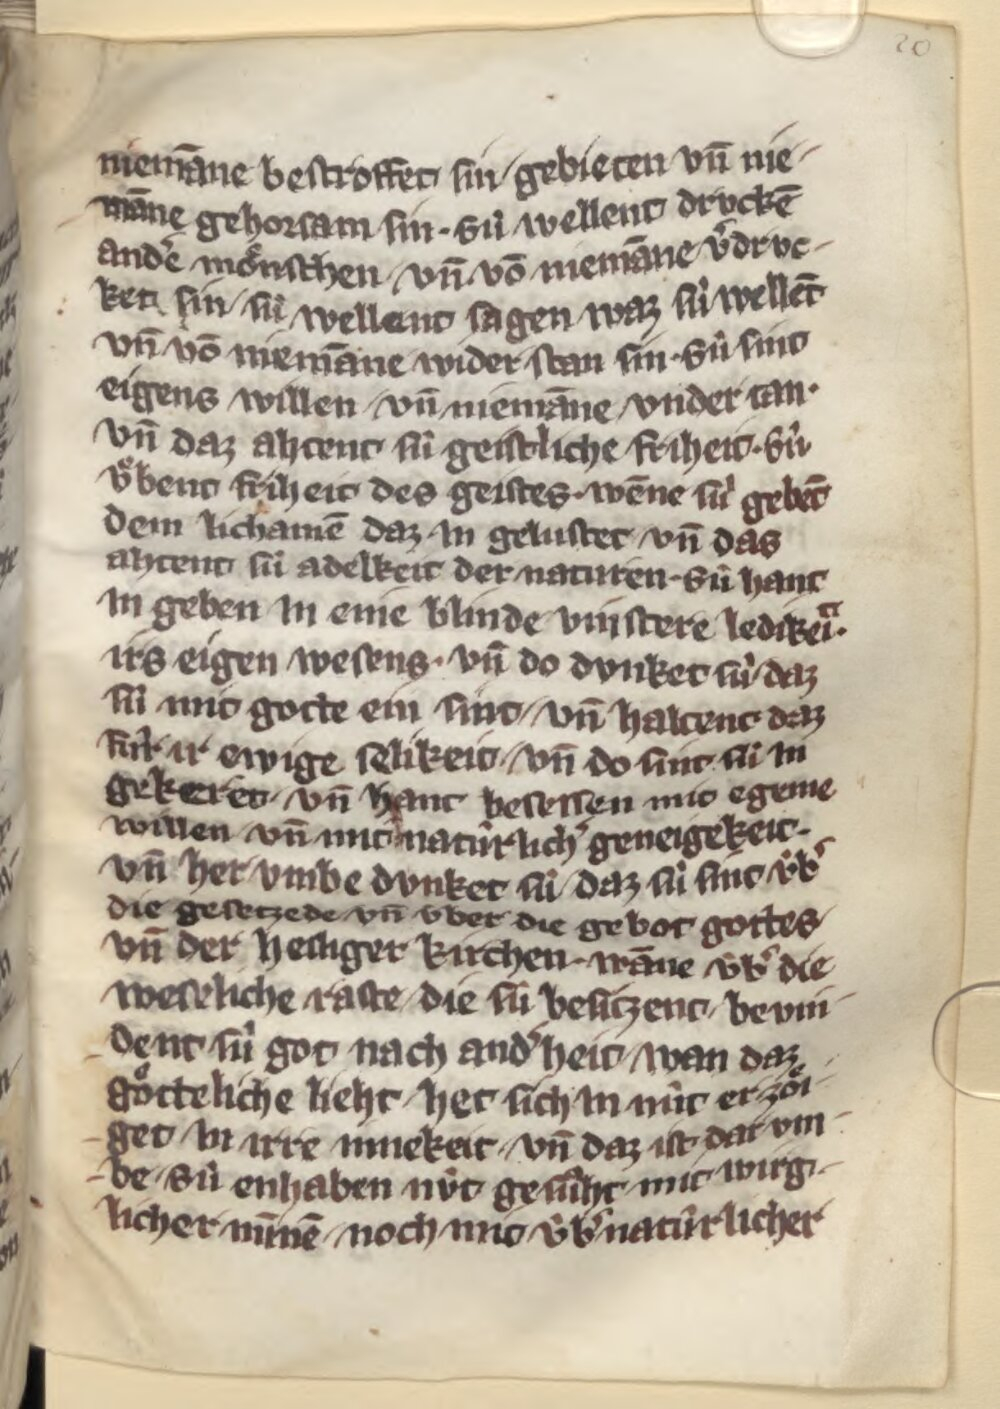 20
niemāne bestroffet sin gebieten vn̄ nie
māne gehorsam sin · Sú wellent drvckē
ander̄ mönschen vn̄ vō niemāne v͛drvc
ket sin sú wellent sagen waz sú wellēt
vn̄ vō niemāne wider stan sin · Sú sint
eigens willen vn̄ niemāne vnder tan ·
vn̄ daz ahtent sú geistliche friheit · Sú
v̊bent friheit des geistes · wēne sú gebēt
dem lichamē daz in gelustet vn̄ das
ahtent sú adelkeit der naturen · Sú hant
in geben in eine blinde vinstere ledikeit ·
irs eigen wesens · vn̄ do dvnket sú daz
sú mit gotte ein sint vn̄ haltent daz
fúr ir ewige selikeit vn̄ do sint sú in
gekeret vn̄ hant besessen mit egeme
willen vn̄ mit natúrlich͛ geneigekeit ·
vn̄ her vmbe dvnket sú daz sú sint v́b͛
die gesetzede vn̄ vber die gebot gottes
vn̄ der heiliger kirchen · wāne v́b͛ die
weseliche raste die sú besitzent bevin
dent sú got nach and͛heit wan daz
götteliche lieht het sich in nút erzöi
get in irre innekeit vn̄ daz ist dar vm
be Sú enhaben nv́t gesúht mit wirg
licher minnē noch mit v́b͛natúrlicher